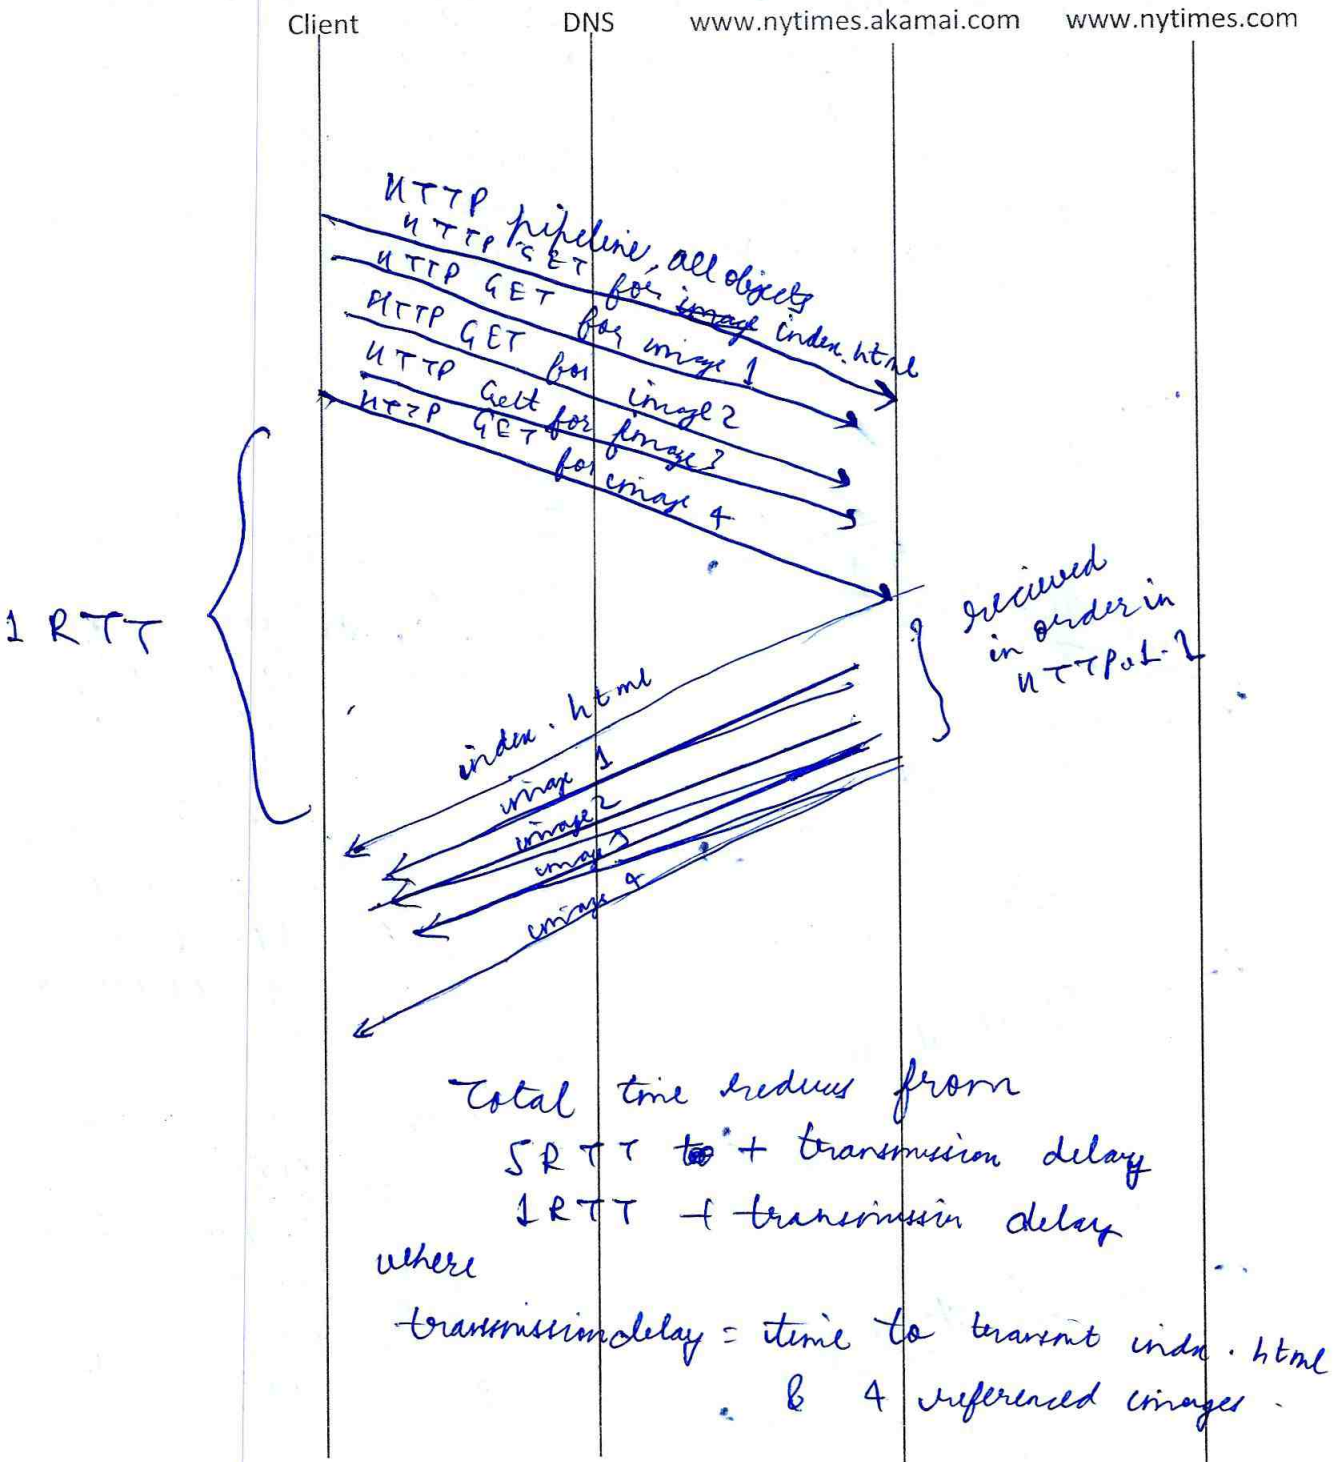 Client DNS www.nytimes.akamai.com www.nytimes.com
HTTP pipeline, all objects
HTTP GET for image index.html
HTTP GET for image 1
HTTP GET for image 2
HTTP Gett for image 3
HTTP GET for image 4
1 RTT
recieved
in order in
HTTP 1.1
index.html
image 1
image 2
image 3
image 4
Total time reduces from
5RTT to + transmission delay
1RTT + transmission delay
where
transmission delay = time to transmit index.html
& 4 referenced images.